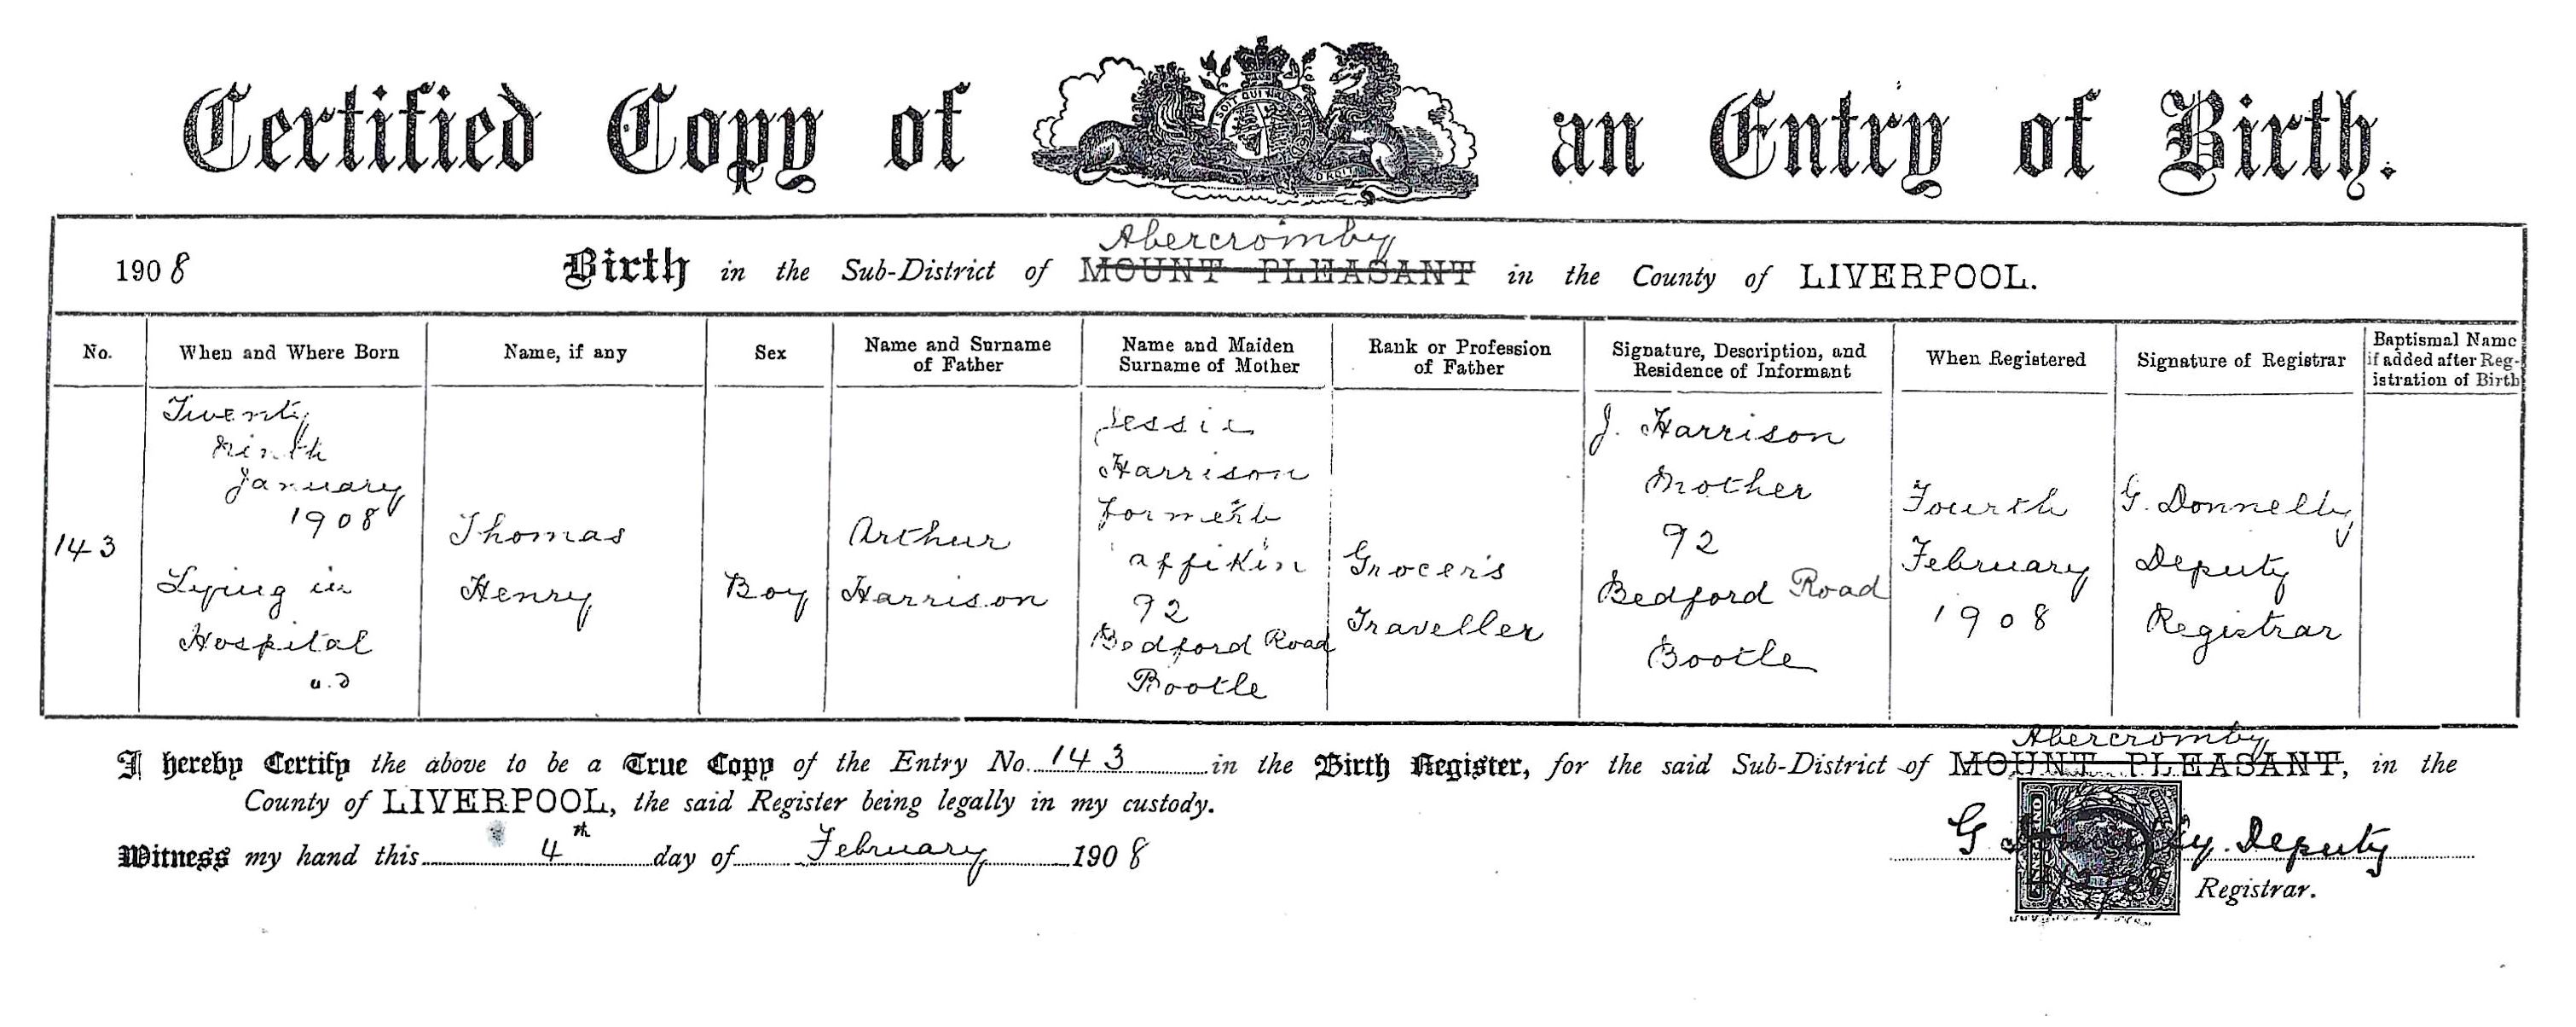 Certified Copy of an Entry of Birth.
SOIT QUI MAL
DROIT
Abercromby
1908 Birth in the Sub-District of MOUNT PLEASANT in the County of LIVERPOOL.
No.
When and Where Born
Name, if any
Sex
Name and Surname
of Father
Name and Maiden
Surname of Mother
Rank or Profession
of Father
Signature, Description, and
Residence of Informant
When Registered
Signature of Registrar
Baptismal Name
if added after Reg-
istration of Birth
143
Twenty
ninth
January
1908
Lying in
Hospital
u.d
Thomas
Henry
Boy
Arthur
Harrison
Jessie
Harrison
formerly
appikin
92
Bedford Road
Bootle
Grocer's
Traveller
J. Harrison
Mother
92
Bedford Road
Bootle
Fourth
February
1908
G. Donnelly
Deputy
Registrar
Abercromby
I hereby Certify the above to be a True Copy of the Entry No. 143 in the Birth Register, for the said Sub-District of MOUNT PLEASANT, in the
County of LIVERPOOL, the said Register being legally in my custody.
Witness my hand this 4th day of February 1908
G. Donnelly. Deputy
Registrar.